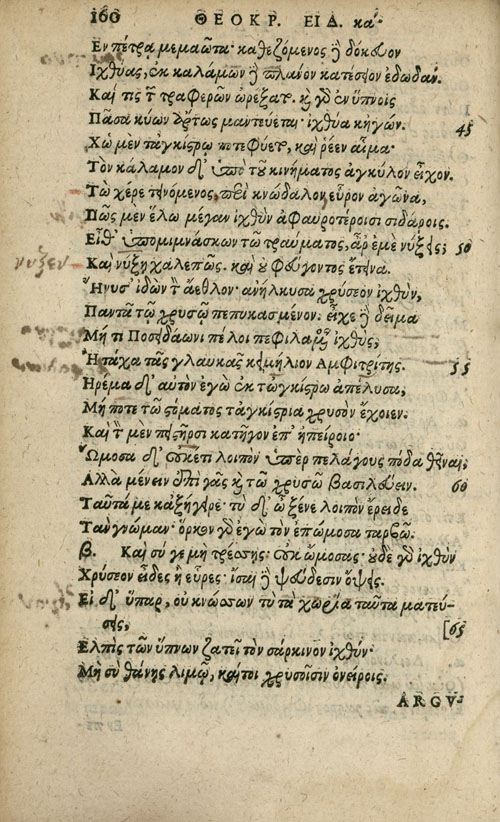 160 ΘΕΟΚΡ. ΕΙΔ. κά.
Εν πέτρᾳ μεμαῶτα· καθεζόμενος ἢ δόκευον
Ιχθύας, ἐκ καλάμων ἢ πλαῖον κατέσειον ἐδωδάν.
Καί τις τ τραφερῶν ὠρέξατο. κ γδ ἐν ὕπνοις
Πᾶσα κύων ἄρτως μαντεύεται· ἰχθύα κἠγών. 45
Χὡ μὲν τἀγκίστρῳ ποτεφύετο, καὶ ῥέεν αἷμα·
Τὸν κάλαμον δ' ὑπὸ τοῦ κινήματος ἀγκύλον εἶχον.
Τὼ χέρε τεινόμενος, περὶ κνώδαλον εὗρον ἀγῶνα,
Πῶς μὲν ἕλω μέγαν ἰχθὺν ἀφαυροτέροισι σιδάροις.
Εἶθ' ὑπομιμνάσκων τῶ τραύματος, ἆρ' ἐμὲ νύξῃς; 50
νυξεν Καὶ νύξῃ χαλεπῶς. καὶ οὐ φεύγοντος ἔτεινα.
Ἤνυσ' ἰδὼν τ ἄεθλον· ἀνήλκυσα χρύσεον ἰχθὺν,
Παντᾶ τῷ χρυσῷ πεπυκασμένον. εἶχε ἢ δεῖμα
Μή τι Ποσειδάωνι πέλοι πεφιλαμ ἰχθὺς;
Ἢ τάχα τᾶς γλαυκᾶς κειμήλιον Αμφιτρίτης. 55
Ηρέμα δ' αὐτὸν ἐγὼ ἐκ τὠγκίστρῳ ἀπέλυσα,
Μή ποτε τῶ στόματος τἀγκίστρια χρυσὸν ἔχοιεν.
Καὶ τ μὲν πειστῆρσι κατῆγον ἐπ' ἠπείροιο·
Ὤμοσα δ' οὐκέτι λοιπὸν ὑπὲρ πελάγους πόδα θεῖναι;
Αλλὰ μένειν ἐπὶ γᾶς κ τῶ χρυσῶ βασιλεύειν. 60
Ταῦτά με κἀξήγειρε· τὺ δ' ὦ ξένε λοιπὸν ἔρειδε
Τὰν γνώμαν· ὅρκον γδ ἐγὼ τὸν ἐπώμοσα ταρβῶ.
β. Καὶ σύ γε μὴ τρέσσης· οὐκ ὤμοσας· οὐδὲ γδ ἰχθὺν
Χρύσεον εἶδες ἢ εὗρες· ἴσαι ἢ ψεύδεσιν ὄψεις.
Εἰ δ' ὕπαρ, οὐ κνώσσων τὺ τὰ χωρία ταῦτα ματεύ-
σῃς, [65
Ελπὶς τῶν ὕπνων ζατεῖ τὸν σάρκινον ἰχθύν·
Μὴ σὺ θάνης λιμῷ, καίτοι χρυσοῖσιν ὀνείροις.
ARGV-